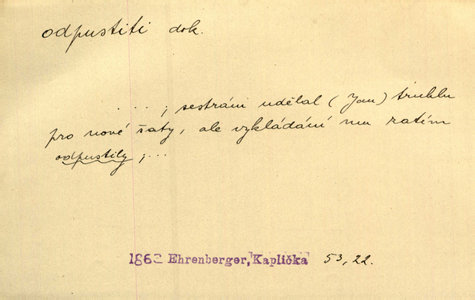 odpustiti dok.
...; sestrám udělal (Jan) truhlu
pro nové šaty, ale vykládání mu zatím
odpustily; ...
1863 Ehrenberger, Kaplička 53, 22.